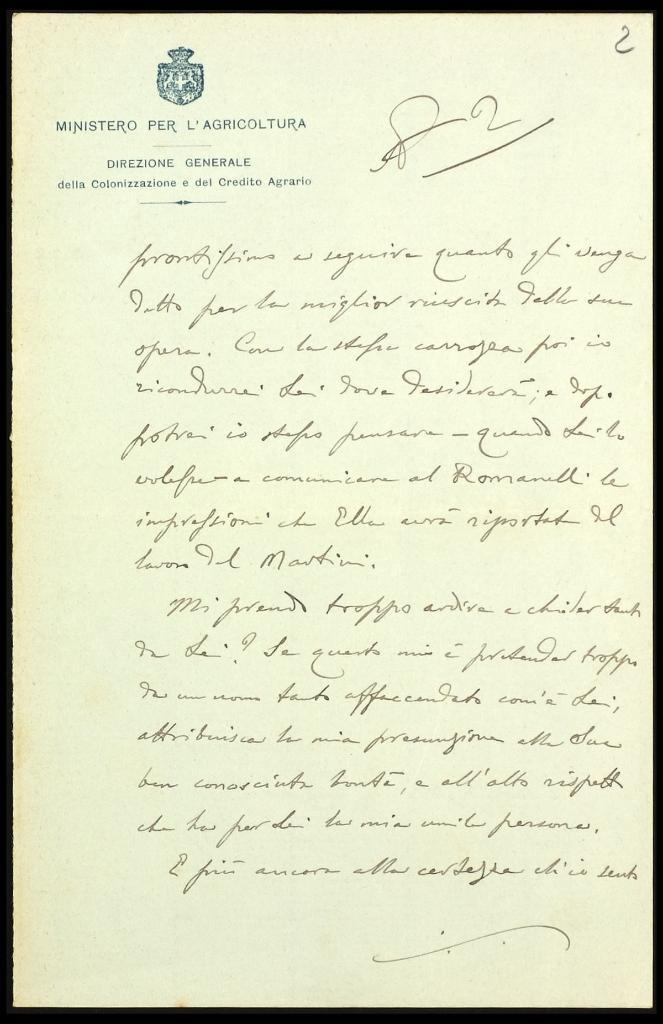 2
MINISTERO PER L'AGRICOLTURA
DIREZIONE GENERALE
della Colonizzazione e del Credito Agrario
2
prontissimo a seguire quanto gli venga
detto per la miglior riuscita della sua
opera. Con la stessa carrozza poi io
ricondurrei Lei dove desidererà; e dopo
potrei io stesso pensare – quando Lei lo
volesse – a comunicare al Romanelli le
impressioni che Ella avrà riportate del
lavoro del Martini.
Mi prendo troppo ardire a chieder tanto
da Lei? Se questo mio è pretender troppo
da un uomo tanto affaccendato com'è Lei,
attribuisca la mia presunzione alla Sua
ben conosciuta bontà, e all'alto rispetto
che ha per Lei la mia umile persona.
E più ancora alla certezza ch'io sento